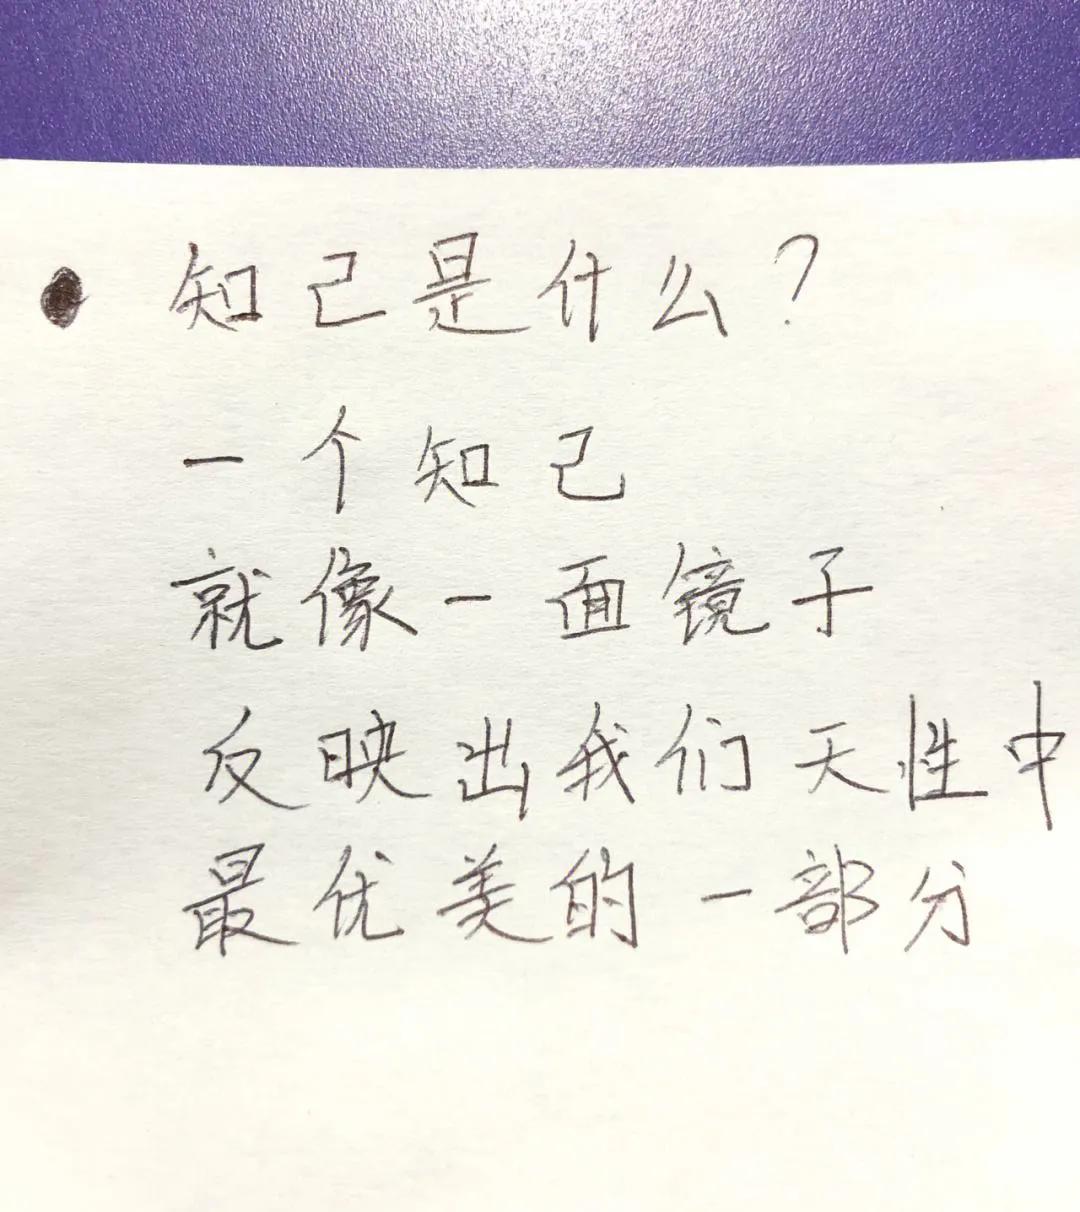 ● 知己是什么?
一个知己
就像一面镜子
反映出我们天性中
最优美的一部分